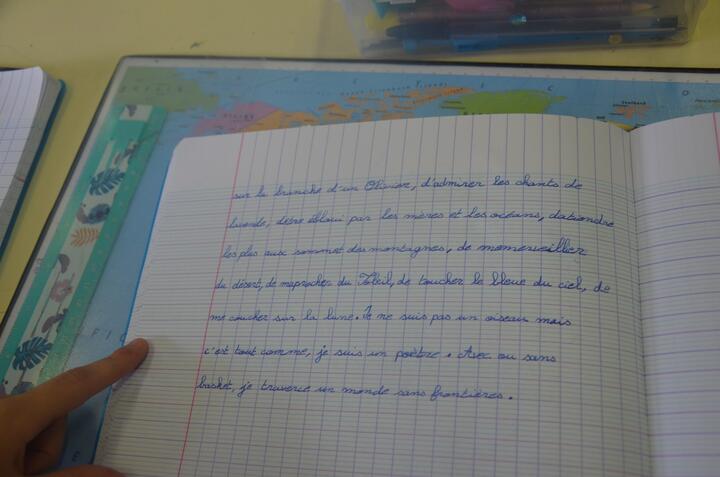 sur la branche d'un Olivier, d'admirer les chants de
lavende, d'être ébloui par les mères et les océans, d'atiendre
les plus aux sommet des montagnes, de memerveiller
du désert, de maprocher du Soleil, de toucher le bleue du ciel, de
me coucher sur la lune. Je ne suis pas un oiseau mais
c'est tout comme, je suis un poètre. Avec ou sans
basket, je traverce un monde sans frontières.